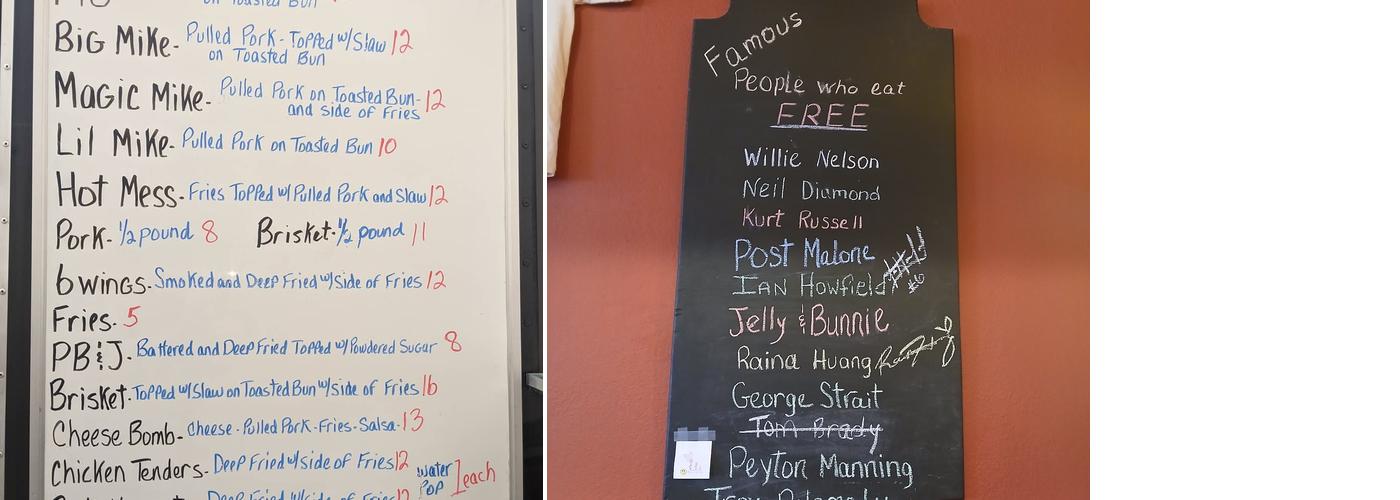 on Toasted Bun
Big Mike- Pulled Pork-Topped w/Slaw 12
on Toasted Bun
Magic Mike- Pulled Pork on Toasted Bun- 12
and side of Fries
Lil Mike- Pulled Pork on Toasted Bun 10
Hot Mess- Fries Topped w/Pulled Pork and Slaw 12
Pork- 1/2 pound 8 Brisket- 1/2 pound 11
6 wings- Smoked and Deep Fried w/Side of Fries 12
Fries- 5
PB&J- Battered and Deep Fried Topped w/Powdered Sugar 8
Brisket- Topped w/Slaw on Toasted Bun w/side of Fries 16
Cheese Bomb- Cheese-Pulled Pork-Fries-Salsa- 13
Chicken Tenders- Deep Fried w/side of Fries 12
water
Pop 1 each
Deep Fried w/side of Fries 12
Famous
People who eat
FREE
Willie Nelson
Neil Diamond
Kurt Russell
Post Malone
Ian Howfield
Jelly & Bunnie
Raina Huang
George Strait
Tom Brady
Peyton Manning